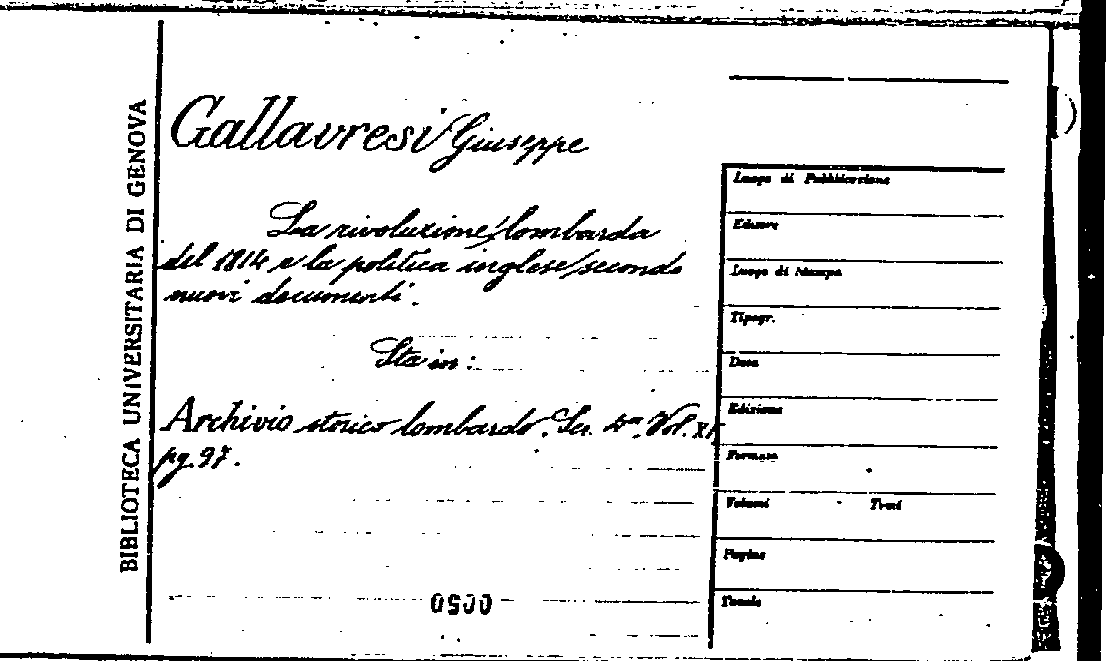 BIBLIOTECA UNIVERSITARIA DI GENOVA
Gallavresi Giuseppe
La rivoluzione lombarda
del 1814 e la politica inglese secondo
nuovi documenti.
Sta in:
Archivio storico lombardo. Ser. 4ª. Vol.
pg. 97.
0500
Luogo di Pubblicazione
Editore
Luogo di Stampa
Tipogr.
Data
Edizione
Formato
Volumi Tomi
Pagine
Tavole